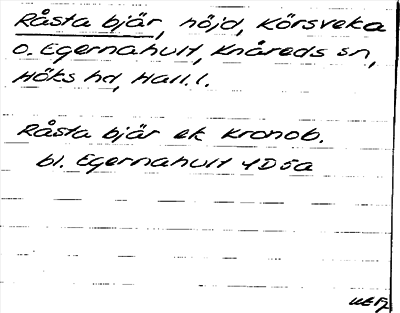 Råsta bjär, höjd, Körsveka
o. Egernahult, Knåreds sn,
Höks hd, Hall. l.
Råsta bjär ek Kronob.
bl. Egernahult 4D5a